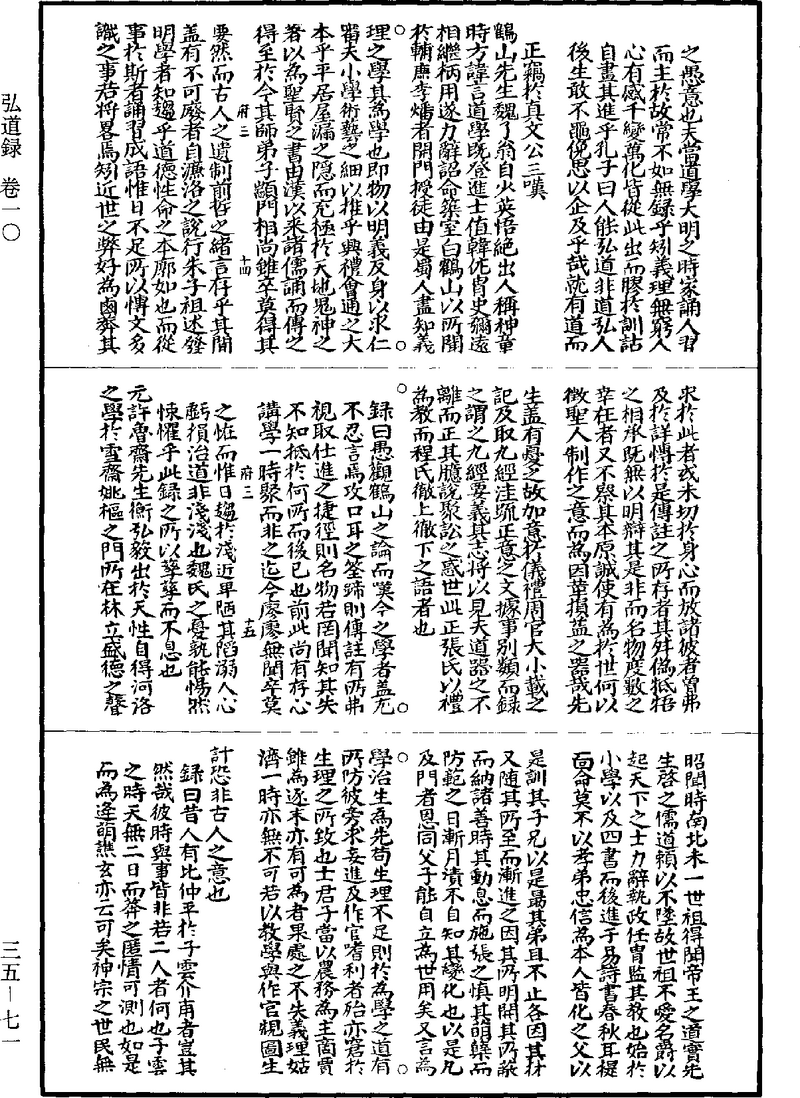 弘道録 卷一〇
之愚意也夫當道學大明之時家誦人習
而主於故常不如無録乎矧義理無窮人
心有感千變萬化皆從此出而膠於訓詁
自畫其進乎孔子曰人能弘道非道弘人
後生敢不黽俛思以企及乎哉就有道而
正竊於真文公三嘆
鶴山先生魏了翁自少英悟絶出人稱神童
時方諱言道學既登進士值韓侂冑史彌遠
相繼柄用遂力辭詔命築室白鶴山以所聞
於輔廣李燔者開門授徒由是蜀人盡知義
理之學其為學也即物以明義反身以求仁
審夫小學術藝之細以推乎興禮會通之大
本乎平居屋漏之隱而充極於天地鬼神之
著以為聖賢之書由漢以来諸儒誦而傳之
得至於今其師弟子顓門相尚雖卒莫得其
府三 十四
要然而古人之遺制前哲之緒言存乎其間
盖有不可廢者自濂洛之說行朱子祖述發
明學者知趨乎道德性命之本廓如也而從
事於斯者誦習成語惟日不足所以愽文多
識之事若将畧焉矧近世之弊好為鹵莽其
求於此者或未切於身心而放諸彼者曽弗
及於詳愽於是傳註之所存者其舛偽牴牾
之相承既無以明辯其是非而名物度數之
幸在者又不察其本原誠使有為於世何以
徴聖人制作之意而為因革損益之器哉先
生盖有憂之故加意於儀禮周官大小戴之
記及取九經注疏正意之文據事别類而録
之謂之九經要義其志将以見夫道器之不
離而正其臆說聚訟之惑世此正張氏以禮
為教而程氏徹上徹下之語者也
録曰愚觀鶴山之論而嘆今之學者盖尤
不忍言焉攻口耳之筌蹄則傳註有所弗
視取仕進之捷徑則名物若罔聞知其失
不知抵於何所而後已也前此尚有存心
講學一時聚而非之迄今廖廖無聞卒莫
府三 十五
之恠而惟日趨於淺近卑陋其䧟溺人心
虧損治道非淺淺也魏氏之憂孰能惕然
悚懼乎此録之所以孳孳而不息也
元許魯齋先生衡弘毅出於天性自得河洛
之學於雪齋姚樞之門所在林立盛德之聲
昭聞時南北未一世祖得聞帝王之道實先
生啓之儒道賴以不墜故世祖不愛名爵以
起天下之士力辭執政任胄監其教也始於
小學以及四書而後進于易詩書春秋耳提
面命莫不以孝弟忠信為本人皆化之父以
是訓其子兄以是朂其弟且不止各因其材
又随其所至而漸進之因其所明開其所蔽
而納諸善時其動息而施張之慎其萌櫱而
防範之日漸月漬不自知其變化也以是凡
及門者恩同父子能自立為世用矣又言為
學治生為先苟生理不足則於為學之道有
所防彼旁求妄進及作官嗜利者殆亦窘於
生理之所致也士君子當以農務為主商賈
雖為逐末亦有可為者果處之不失義理姑
濟一時亦無不可若以教學與作官規圖生
計恐非古人之意也
録曰昔人有比仲平於子雲介甫者豈其
然哉彼時與事皆非若二人者何也子雲
之時天無二日而莽之匿情可測也如是
而為逢萌譙玄亦云可矣神宗之世民無
三五-七一